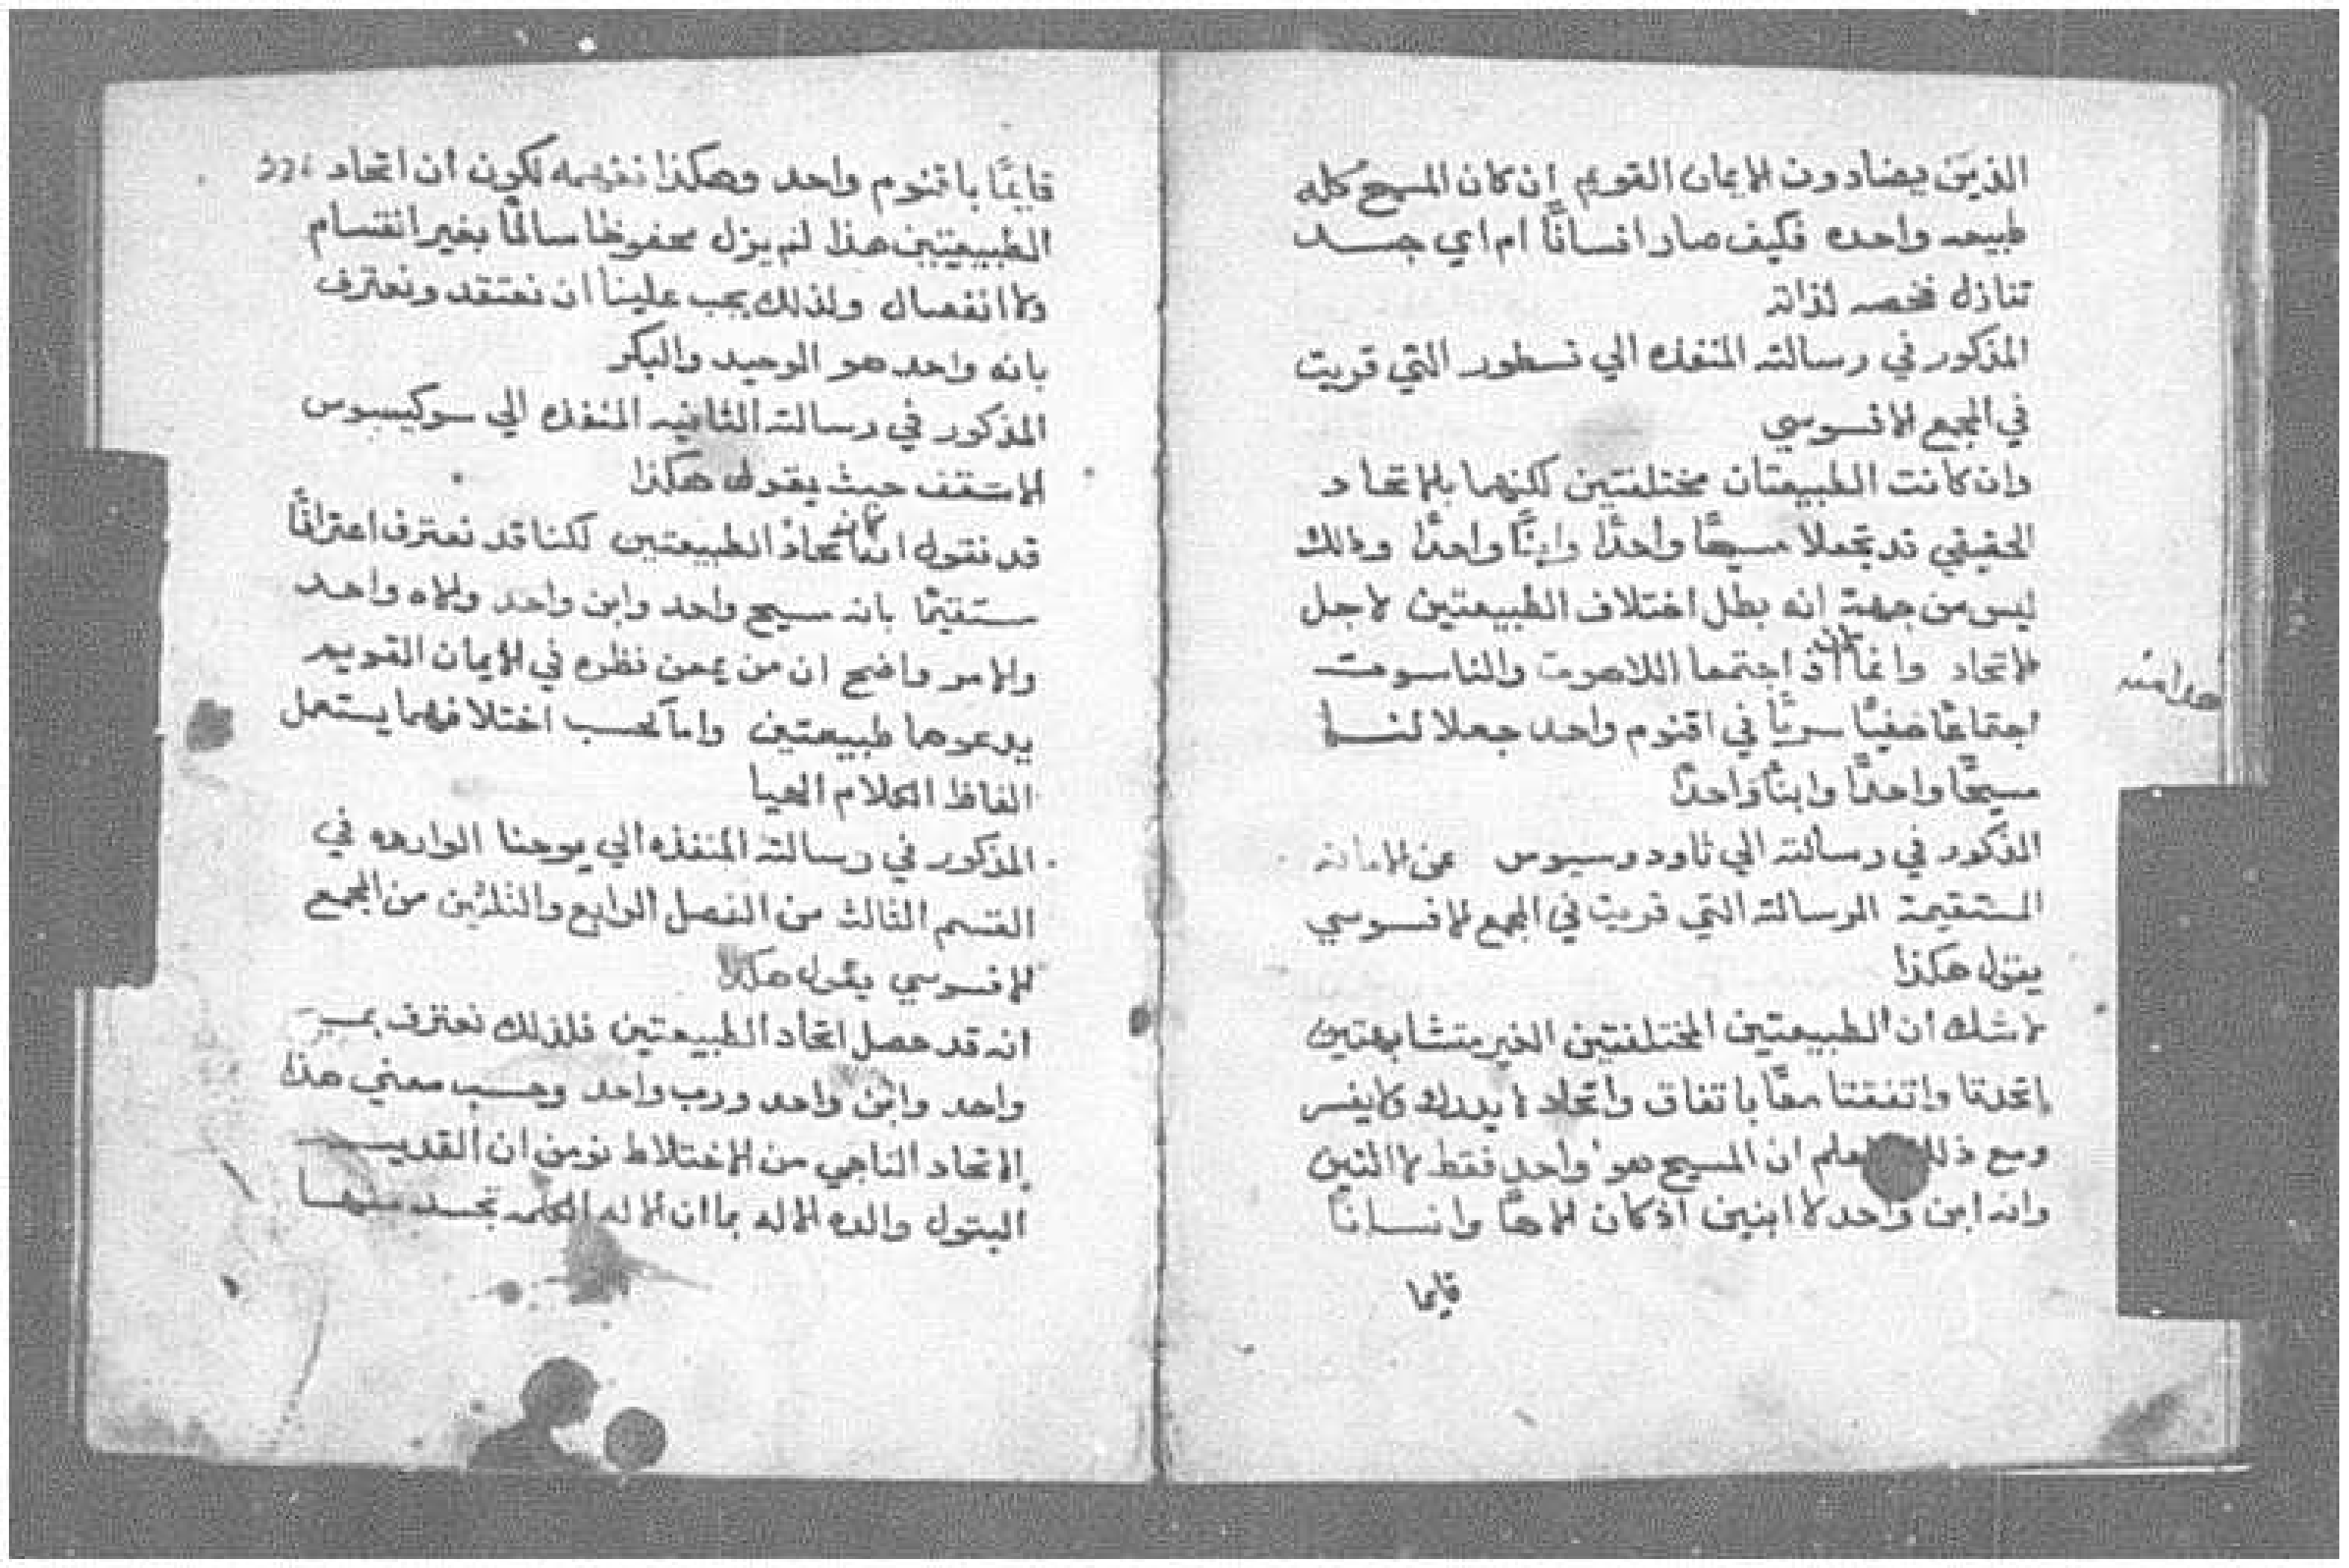 الذين يضادون الايمان القويم ان كان المسيح كله
طبيعه واحده فكيف صار انسانًا ام اي جسد
تنازل لذاته
المذكور في رسالته المنفذه الي نسطور التي قريت
في المجمع الافسوسي
وان كانت الطبيعتان مختلفتين لكنهما بالاتحاد
الحقيقي قد تجعلا مسيحًا واحدًا وابنًا واحدًا وذالك
ليس من جهة انه بطل اختلاف الطبيعتين لاجل
الاتحاد وانما اذ اجتمعا اللاهوت والناسوت
اجتماعًا خفيًا سريًا في اقنوم واحد جعلا لنا
مسيحًا واحدًا وابنًا واحدًا
المذكور في رسالته الي تاودوسيوس عن الامانه
المستقيمة الرسالته التي قريت في المجمع الافسوسي
يقول هكذا
لا شك ان الطبيعتين المختلفتين الغير متشابهتين
اتحدتا واتفقتا معًا باتفاق واتحاد لا يدرك ولا يفسر
ومع ان المسيح هو واحد فقط لا اثنين
وانه ابن واحد لا ابنين اذ كان الاهًا وانسانًا
قايما
قايمًا باقنوم واحد وهكذا نفهمه لكون ان اتحاد
الطبيعتين هذا لم يزل محفوظا سالمًا بغير انقسام
ولا انفصال ولذلك يجب علينا ان نعتقد ونعترف
بانه واحد هو الوحيد والبكر
المذكور في رسالته الثانيه المنفذه الي سوكيسوس
الاسقف حيث يقول هكذا
قد نقول اتحاد الطبيعتين لكننا قد نعترف اعترافًا
مستقيمًا بانه مسيح واحد وابن واحد والاه واحد
والامر واضح ان من يمعن نظره في الايمان القويم
يدعوها طبيعتين واما لحسب اختلافهما يستعمل
الفاظ الكلام
المذكور في رسالته المنفذه الي يوحنا الوارده في
القسم الثالث من الفصل الرابع والثلثين من المجمع
الافسوسي يقول هكذا
انه قد حصل اتحاد الطبيعتين فلذلك نعترف
واحد وابن واحد ورب واحد وحسب معني هذا
الاتحاد الناجي من الاختلاط نومن ان القديسه
البتول والده الاله بما ان الاله الكلمه تجسد منها